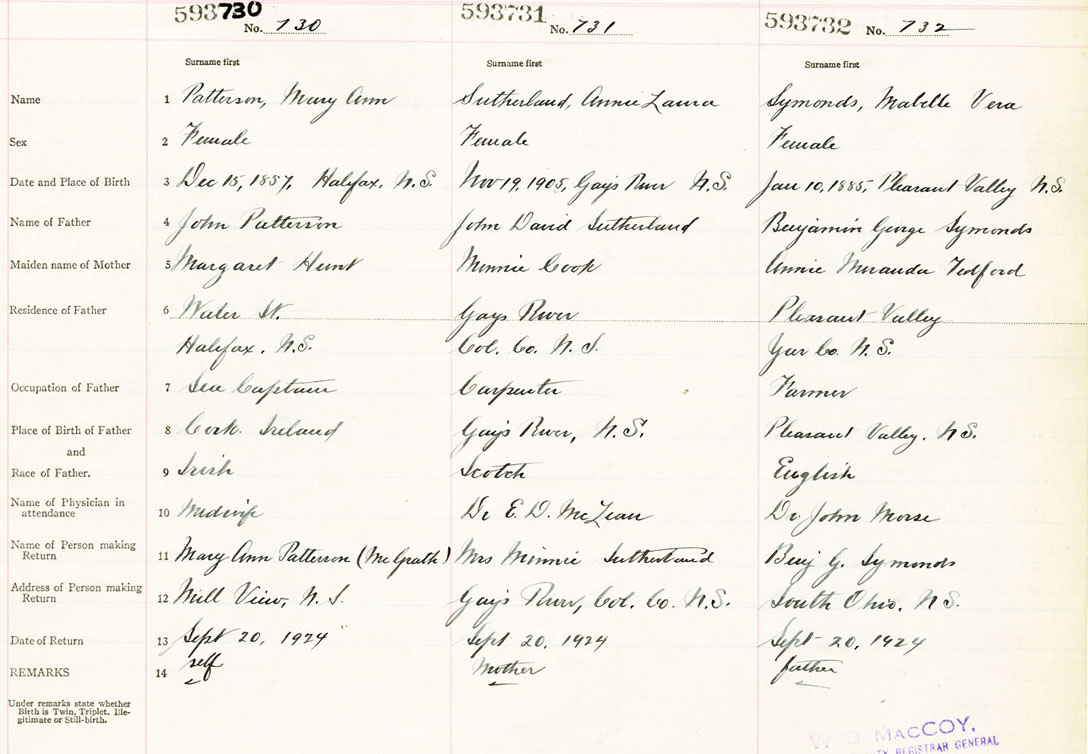 593730 593731 593732
No. 730 No. 731 No. 732
Surname first Surname first Surname first
Name 1 Patterson, Mary Ann Sutherland, Annie Laura Symonds, Mabelle Vera
Sex 2 Female Female Female
Date and Place of Birth 3 Dec 15, 1857, Halifax, N.S. Nov 19, 1905, Gays River N.S. Jan 10, 1885, Pleasant Valley N.S.
Name of Father 4 John Patterson John David Sutherland Benjamin George Symonds
Maiden name of Mother 5 Margaret Hunt Minnie Cook Annie Miranda Tedford
Residence of Father 6 Water St. Gays River Pleasant Valley
Halifax, N.S. Col. Co. N.S. Yar Co. N.S.
Occupation of Father 7 Sea Captain Carpenter Farmer
Place of Birth of Father 8 Cork. Ireland Gays River, N.S. Pleasant Valley. N.S.
and
Race of Father. 9 Irish Scotch English
Name of Physician in
attendance 10 Midwife Dr E. D. McLean Dr. John Morse
Name of Person making
Return 11 Mary Ann Patterson (McGrath) Mrs Minnie Sutherland Benj G. Symonds
Address of Person making
Return 12 Mill View, N.S. Gays River, Col. Co. N.S. South Ohio, N.S.
Date of Return 13 Sept 20, 1924 Sept 20, 1924 Sept 20, 1924
REMARKS 14 self Mother father
Under remarks state whether
Birth is Twin, Triplet, Ille-
gitimate or Still-birth.
W. D. MacCOY,
REGISTRAR GENERAL